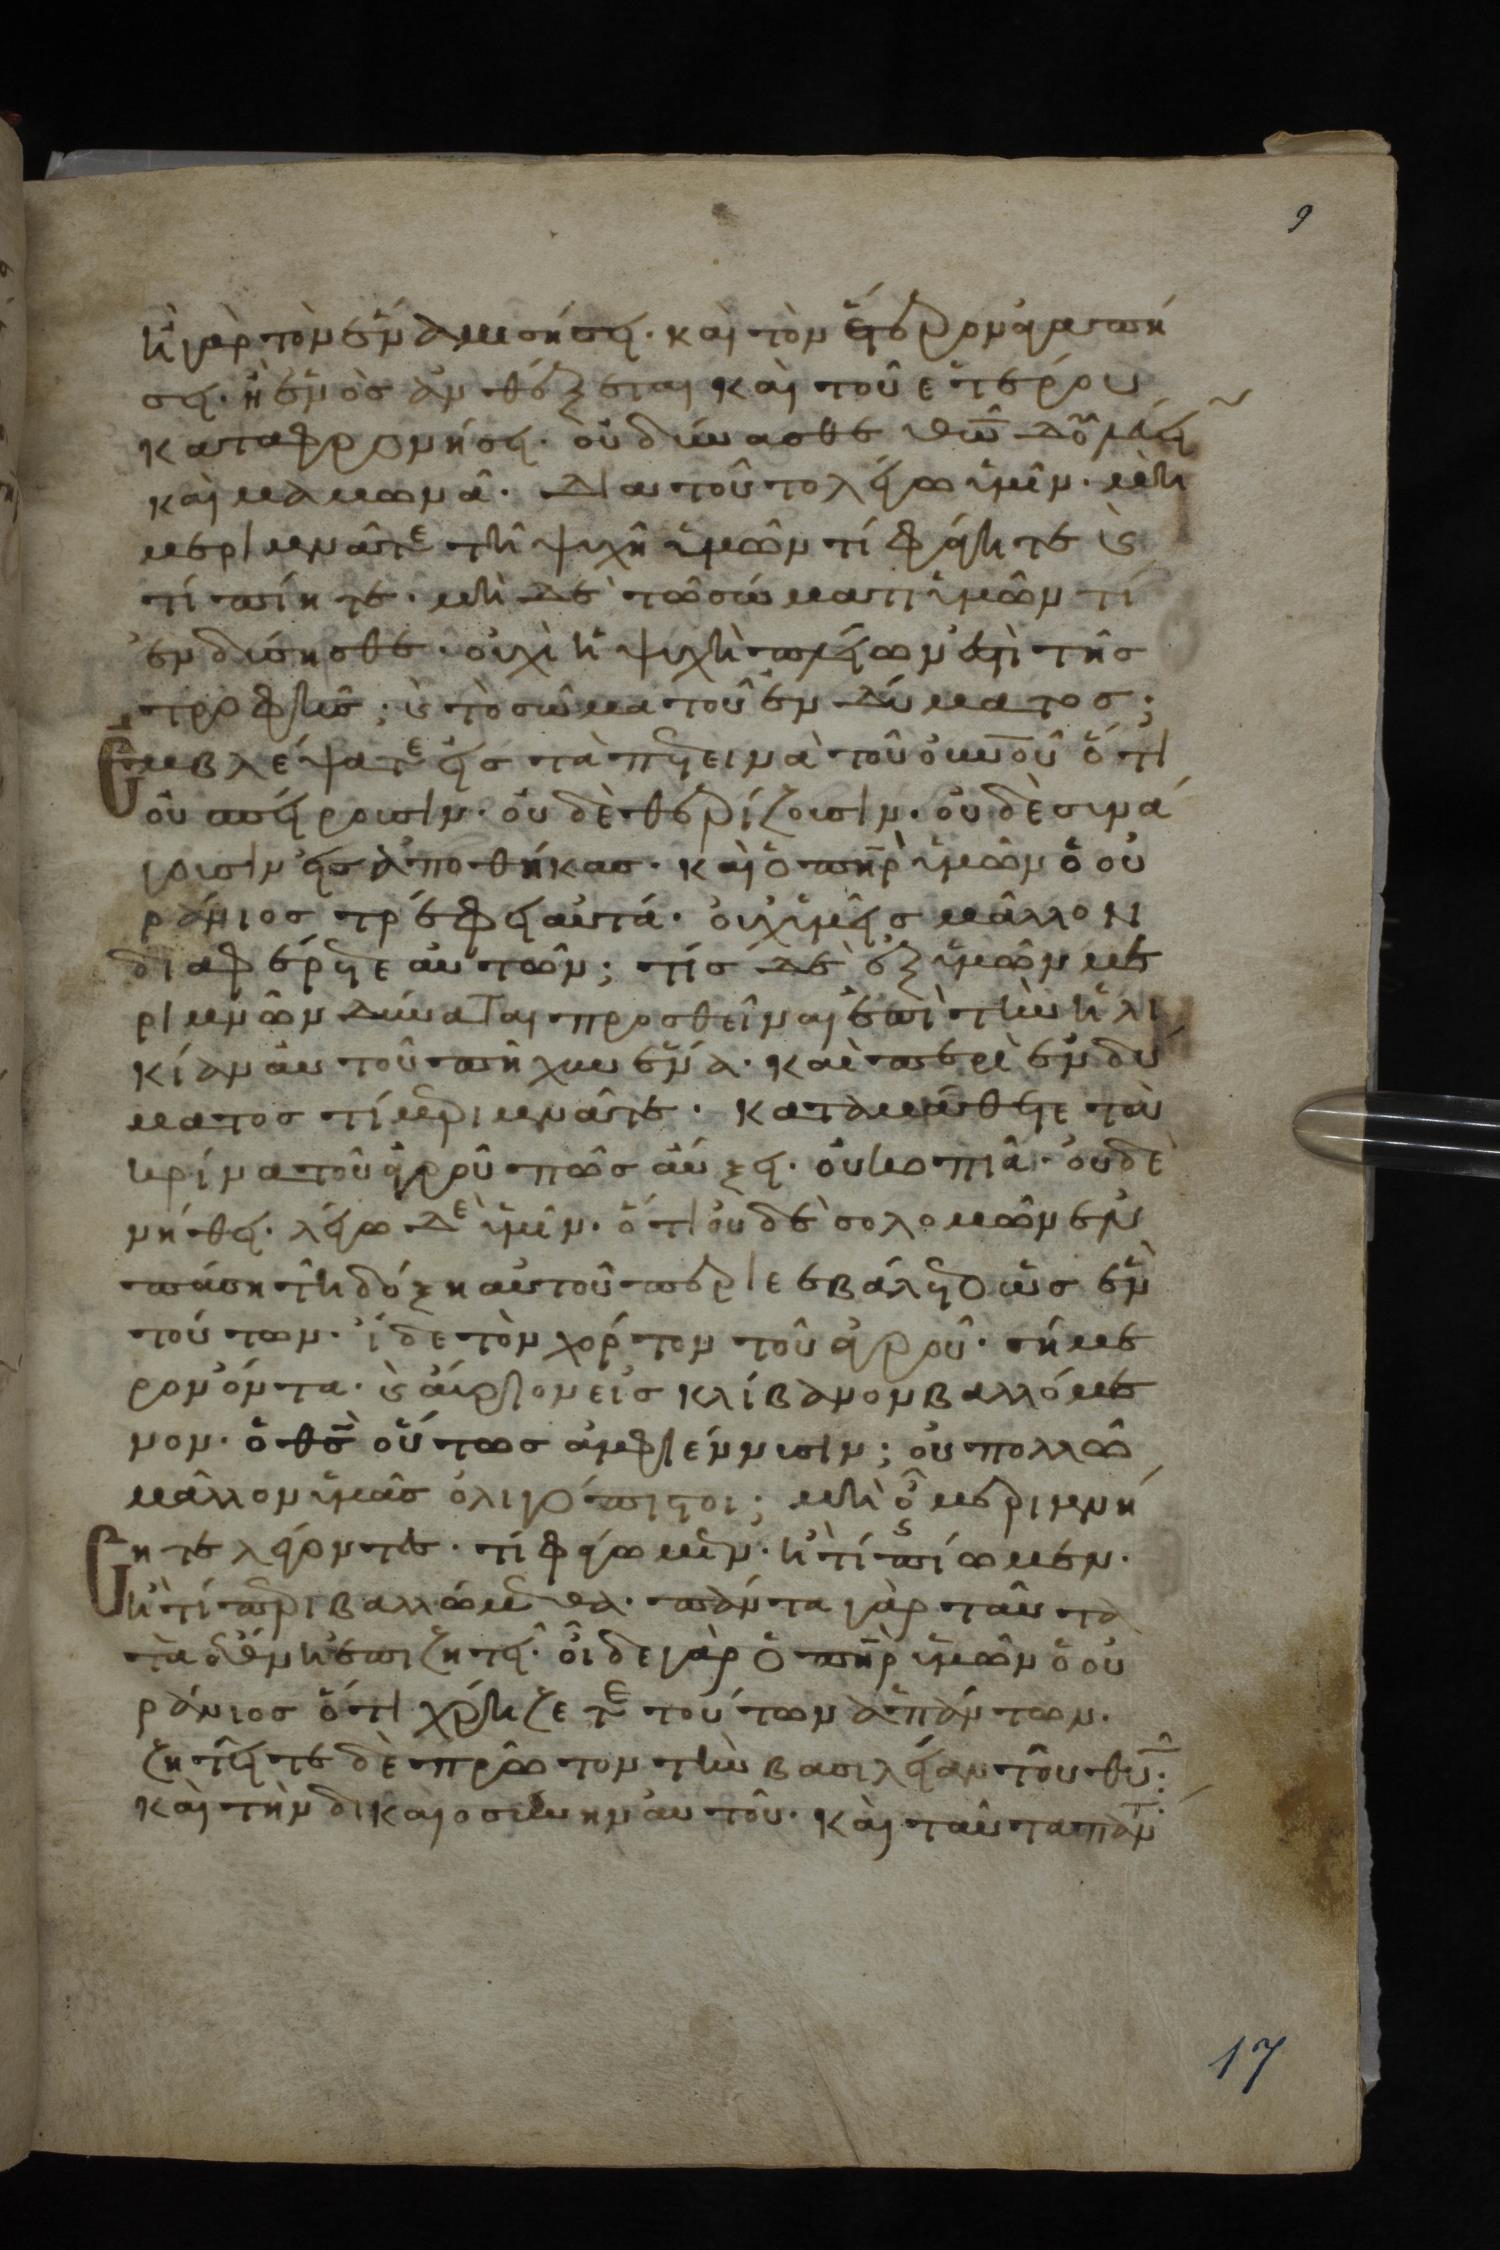 9
ἢ γὰρ τὸν ἕνα μισήσει· καὶ τὸν ἕτερον ἀγαπή
σει· ἢ ἑνὸς ἀνθέξεται καὶ τοῦ ἑτέρου
καταφρονήσει· οὐ δύνασθε θω δουλεύειν
καὶ μαμωνᾶ· Διατοῦτο λέγω ὑμῖν· μὴ
μεριμνᾶτε τῇ ψυχῇ ὑμῶν τί φάγητε ϗ
τί πίητε· μὴ δὲ τῷ σώματι ὑμῶν τί
ἐνδύσησθε· οὐχὶ ἡ ψυχὴ πλεῖων ἐστὶ τῆς
τροφῆς; ϗ τὸ σῶμα τοῦ ἐνδύματος;
Ἐμβλέψατε εἰς τὰ πετεινὰ τοῦ οὐνοῦ ὅτι
οὐ σπείρουσιν· οὐδὲ θερίζουσιν· οὐδὲ συνά
γουσιν εἰς ἀποθήκας· καὶ ὁ πηρ ὑμῶν ὁ οὐ
ράνιος τρέφει αὐτά· οὐχ ὑμεῖς μᾶλλον
διαφέρετε αὐτῶν; τίς δὲ ἐξ ὑμῶν με
ριμνῶν δύναται προσθεῖναι ἐπὶ τὴν ἡλι
κίαν αὐτοῦ πῆχυν ἕνα· καὶ περὶ ἐνδύ
ματος τί μεριμνᾶτε· καταμάθετε τὰ
κρίνα τοῦ ἀγροῦ πῶς αὐξει· οὐ κοπιᾷ· οὐδὲ
νήθει· λέγω δὲ ὑμῖν· ὅτι οὐδὲ σολομῶν ἐν
πάσῃ τῇ δόξῃ αὐτοῦ περιεβάλετο ὡς ἓν
τούτων· ἴδε τὸν χόρτον τοῦ ἀγροῦ· σήμε
ρον ὄντα· ϗ αὔριον εἰς κλίβανον βαλλόμε
νον· ὁ θς οὕτως ἀμφιέννυσιν; οὐ πολλῷ
μᾶλλον ὑμᾶς ὀλιγόπιστοι; μὴ οὖν μεριμνή
σητε λέγοντες· τί φάγωμεν· ἢ τί πίωμεν·
ἢ τί περιβαλλώμεθα· πάντα γὰρ ταῦτα
τὰ ἔθνη ἐπιζητεῖ· οἶδε γὰρ ὁ πηρ ὑμῶν ὁ οὐ
ράνιος ὅτι χρῄζετε τούτων ἁπάντων·
ζητεῖτε δὲ πρῶτον τὴν βασιλείαν τοῦ θυ:
καὶ τὴν δικαιοσύνην αὐτοῦ· καὶ ταῦτα πάν
17